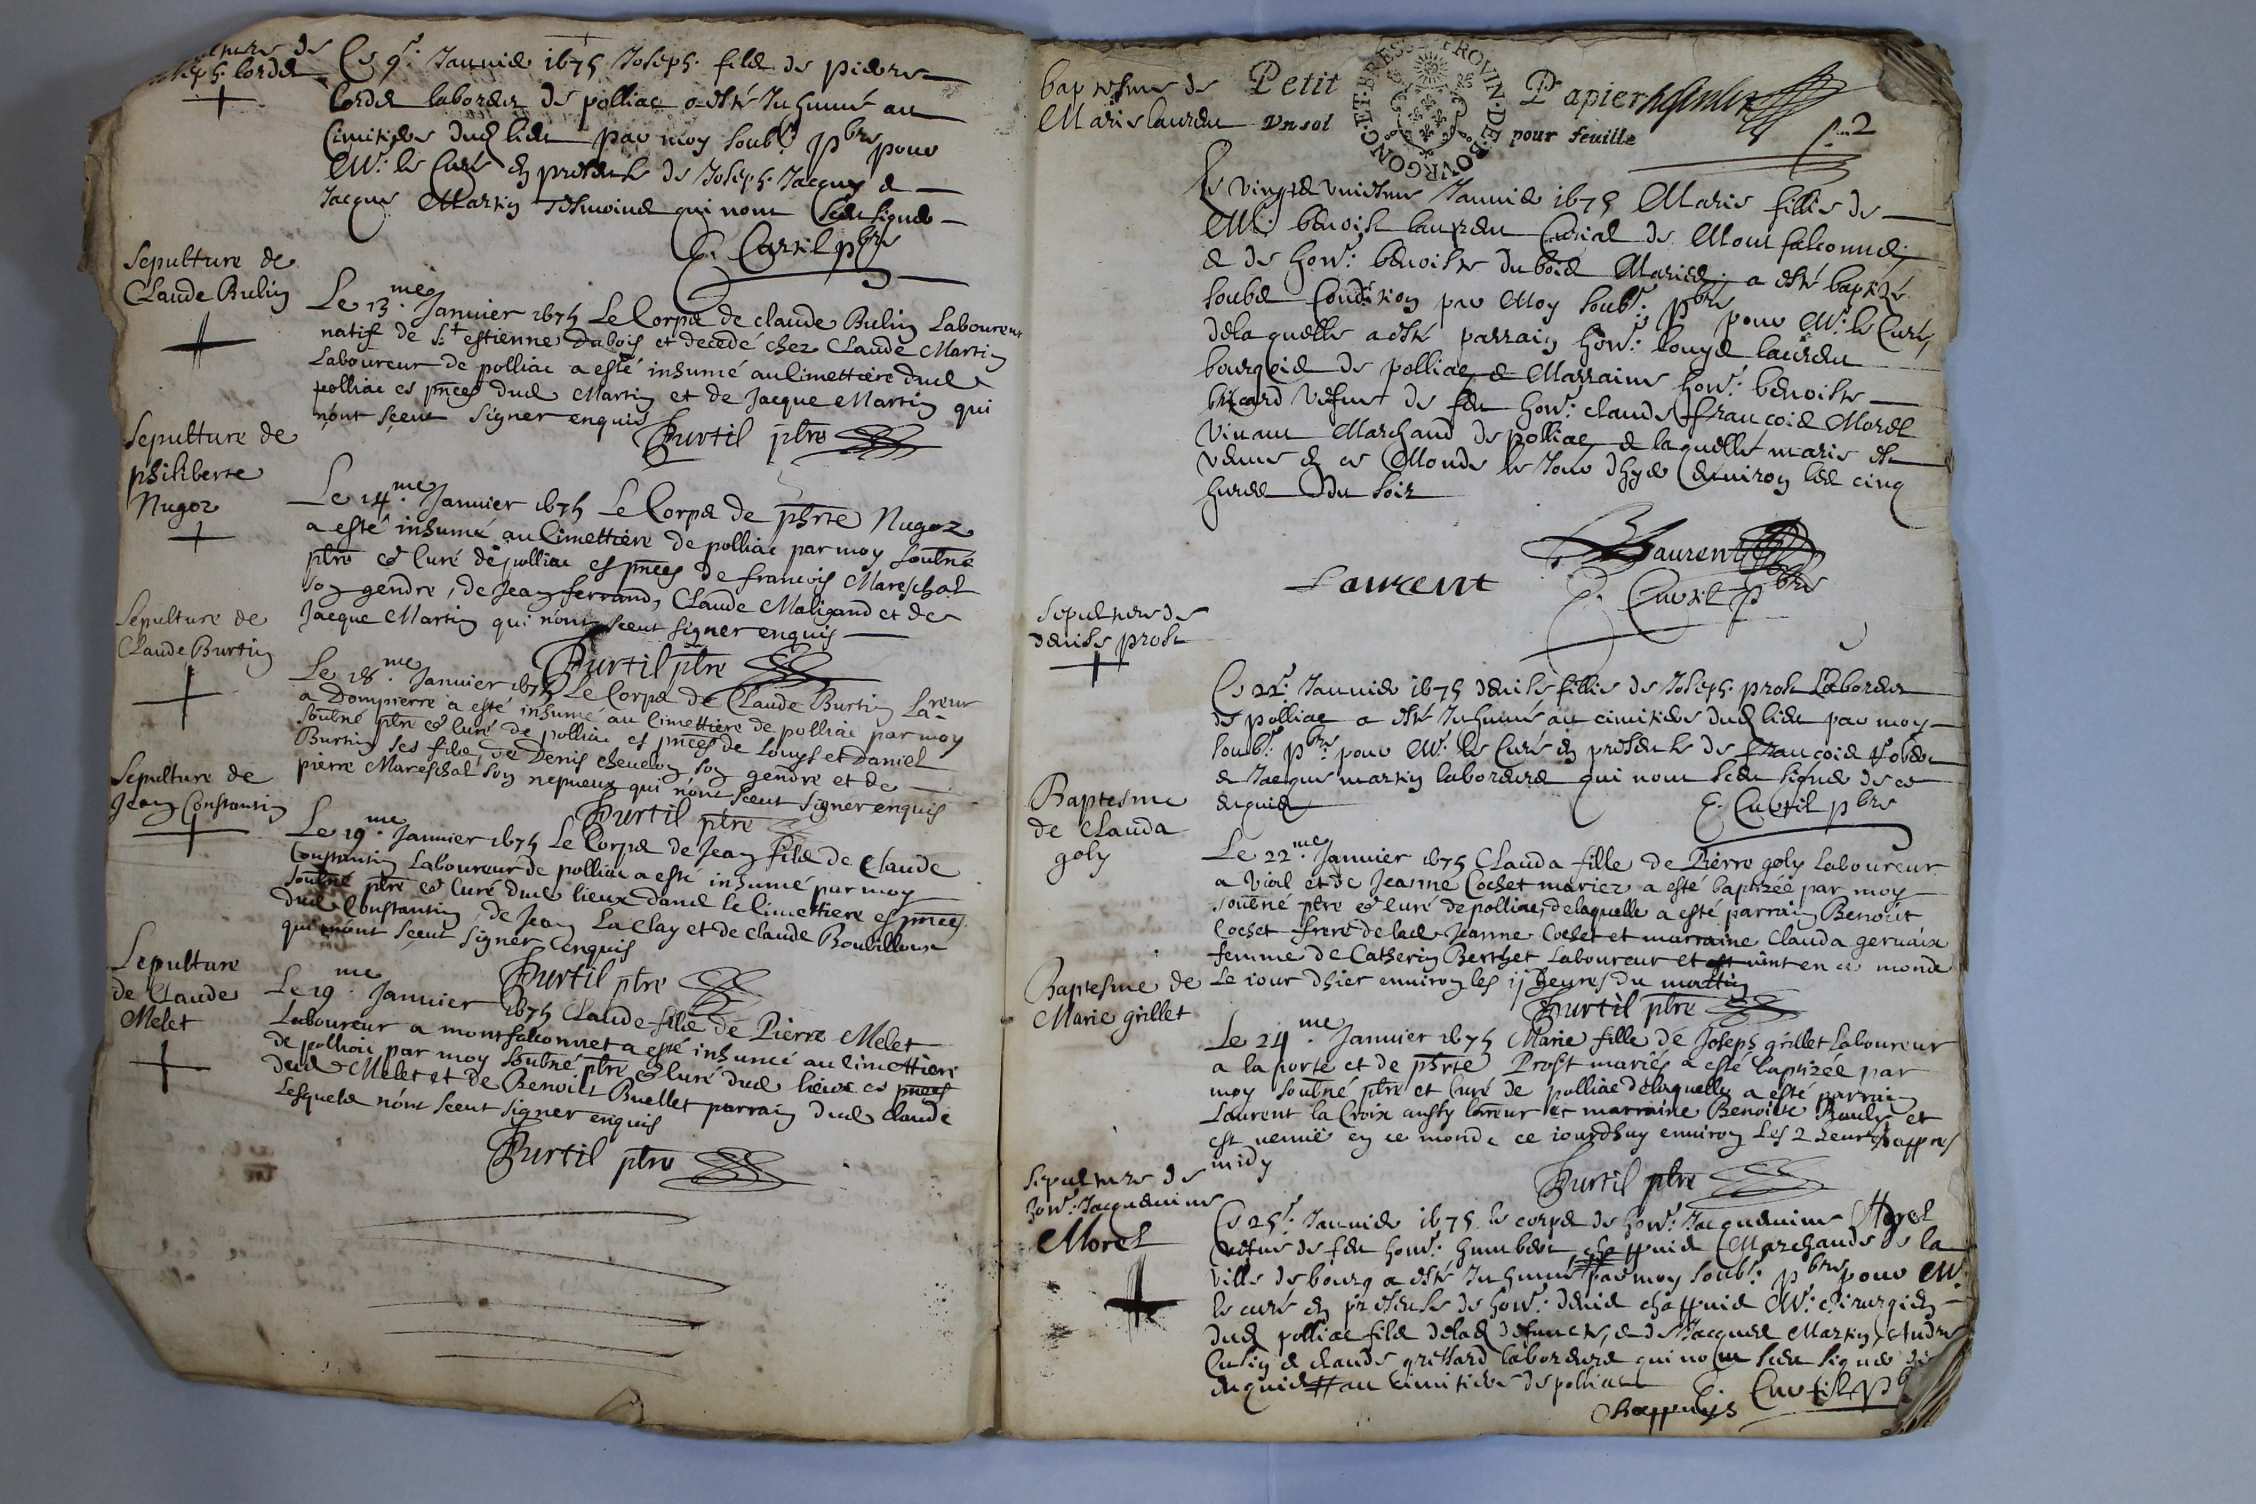 Joseph Cordet
Le 9e. Janvier 1675 Joseph. filz de pierre
Cordet laboreur de polliac a esté Inhumé au
Cimitiere dud lieu par moy soubs. pbre pour
Mr. le Curé en presence de Joseph. Jacquet &
Jacque Martin tesmoins qui nont sceu signer
C. Curtil pbre
Sepulture de
Claude Bulin
Le 13.me Janvier 1675 Le Corps de claude Bulin Laboureur
natif de St estienne dubois et decedé chez Claude Martin
Laboureur de polliac a esté inhumé au Cimettiere dud
polliac es pnces dud Martin et de Jacque Martin qui
nont sceut signer enquis
Curtil ptre
Sepulture de
philiberte
Nugoz
Le 14.me Janvier 1675 Le Corps de phrte Nugoz
a esté inhumé au Cimettiere de polliac par moy soubné
ptre & Curé de polliac es pnces de francois Mareschal
son gendre, de Jean ferrand, Claude Maligand et de
Jacque Martin qui nont sceut signer enquis
Curtil ptre
Sepulture de
Claude Burtin
Le 18.me Janvier 1675 Le Corps de Claude Burtin La-reur
a Dompierre a esté inhumé au Cimettiere de polliac par moy
soubné ptre & Curé de polliac es pnces de Louys et Daniel
Burtin ses filz, de Denis chevelon son gendre et de
pierre Mareschal son nepueux qui nont sceut signer enquis
Curtil ptre
Sepulture de
Jean Constantin
Le 19.me Janvier 1675 Le Corps de Jean filz de Claude
Constantin Laboureur de polliac a esté inhumé par moy
soubné ptre & Curé dud lieux dans le Cimettiere es pnces
dud Constantin, de Jean La Clay et de Claude Boubilloux
qui nont sceut signer enquis
Curtil ptre
Sepulture
de Claude
Melet
Le 19.me Janvier 1675 Claude filz de Pierre Melet
Laboureur a montfalconnet a esté inhumé au Cimettiere
de polliac par moy soubné ptre & Curé dud lieux es pnces
dud Melet et de Benoist Buellet parrain dud Claude
Lesquels nont sceut signer enquis
Curtil ptre
baptesme de
Marie laurent
Petit Papier
Un sol pour feuille
BOVRGONG.ET.BRES PROVIN.DE
f. 2
Le vingt & unieme Janvier 1675 Marie fillie de
Mr. benoist laurent Curial de Montfalconnet
& de hon.: benoiste dubois Mariez. a esté baptizé
soubs Condition par Moy soubs.: pbre pour Mr. le Curé,
de laquelle a esté parrain hon.: louys laurent
bourgois de polliac & Marraine hon.: benoiste
bricard vefve de feu hon.: claude françois Morel
vivant Marchand de polliac & laquelle marie est
venue en ce Monde le Jour dhyer environ les cinq
heures du soir
Laurent
Laurent
C. Curtil pbre
Sepulture de
denise prost
Le 22. Janvier 1675 denise fillie de Joseph. prost Laboreur
de polliac a esté Inhumé au cimitiere dud lieu par moy
soubs. pbre pour Mr. le Curé en presence de françois
& Jacque martin laboreurs qui nont sceu signer de ce
enquis
C. Curtil pbre
Baptesme
de Clauda
goly
Le 22.me Janvier 1675 Clauda fille de Pierre goly Laboureur
a Vial et de Jeanne Cochet mariez a esté baptizée par moy
soubné ptre & Curé de polliac, delaquelle a esté parrain Benoit
Cochet frere de lad Jeanne Cochet et marraine Clauda gervaix
femme de Catherin Berthet Laboureur et est vint en ce monde
Le iour dhier environ les 11 heures du mattin
Curtil ptre
Baptesme de
Marie grillet
Le 24.me Janvier 1675 Marie fille de Joseph grillet Laboureur
a la porte et de phrte Prost mariés a esté baptizée par
moy soubné ptre et Curé de polliac delaquelle a esté parrain
Laurent la Croix aussy Lareur et marraine Benoite et
est venuë en ce monde ce iourdhuy environ Les 2 heures appres
midy
Curtil ptre
Sepulture de
hon.: Jacquemine
Morel
Le 25e. Janvier 1675 le corps de hon.: Jacquemine Morel
vefve de feu hon.: humbert chappuis Marchand de la
ville de bourg a esté Inhumé par moy soubs.: pbre pour Mr.
le curé en presence de hon.: denis chappuis Mr. chirurgien
dud polliac filz de lad defuncte, & de Jacques Martin, Andre
Cusin & claude grissard laboreurs qui nont sceu signer de
enquis # au cimitiere de polliac
C. Curtil pb
Chappuys